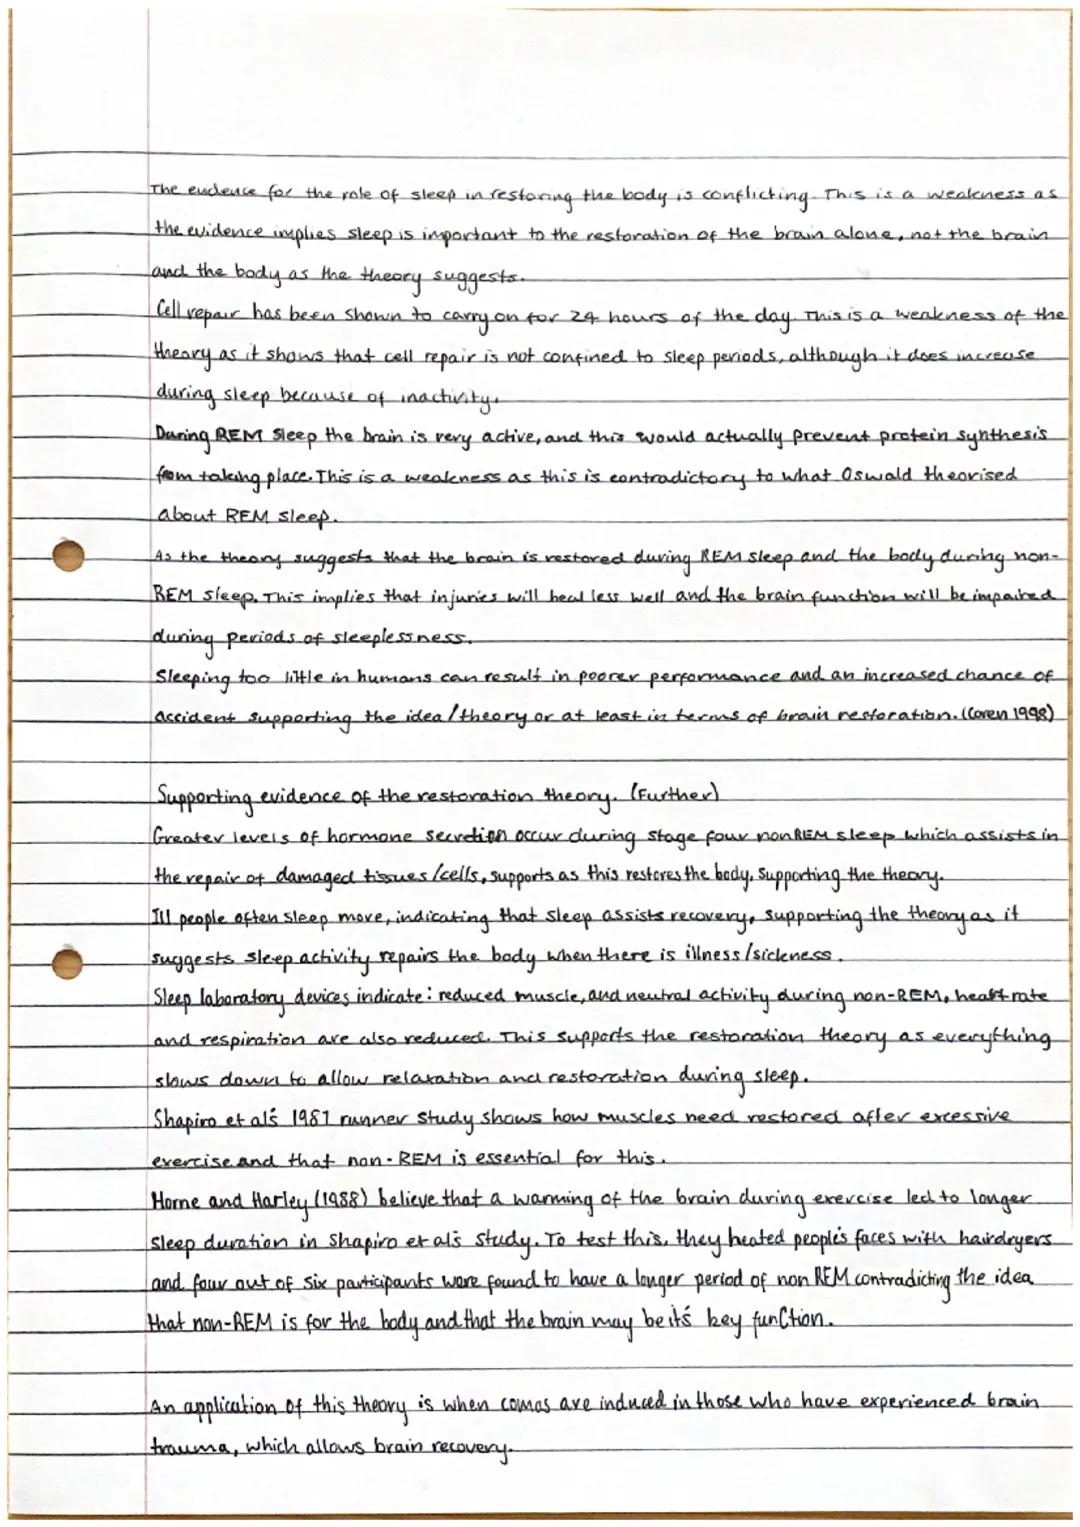 The evidence for the role of sleep in restoring the body is conflicting. This is a weakness as
the evidence implies sleep is important to the restoration of the brain alone, not the brain
and the body as the theory suggests.
Cell repair has been shown to carry on for 24 hours of the day. This is a weakness of the
theory as it shows that cell repair is not confined to sleep periods, although it does increase
during sleep because of inactivity.
During REM Sleep the brain is very active, and this would actually prevent protein synthesis
from taking place. This is a weakness as this is contradictory to what Oswald theorised
about REM sleep.
As the theory suggests that the brain is restored during REM sleep and the body during non-
REM sleep. This implies that injuries will heal less well and the brain function will be impaired
during periods of sleeplessness.
Sleeping too little in humans can result in poorer performance and an increased chance of
accident supporting the idea/theory or at least in terms of brain restoration. (Coren 1998)
Supporting evidence of the restoration theory. (Further)
Greater levels of hormone secretion occur during stage four nonREM sleep which assists in
the repair of damaged tissues/cells, supports as this restores the body, supporting the theory.
Ill people often sleep more, indicating that sleep assists recovery, supporting the theory as it
suggests sleep activity repairs the body when there is illness/sickness.
Sleep laboratory devices indicate: reduced muscle, and neutral activity during non-REM, heart rate
and respiration are also reduced. This supports the restoration theory as everything
slows down to allow relaxation and restoration during sleep.
Shapiro et al's 1981 runner study shows how muscles need restored after excessive
exercise and that non-REM is essential for this.
Horne and Harley (1988) believe that a warming of the brain during exercise led to longer
sleep duration in Shapiro et al's study. To test this, they heated people's faces with hairdryers
and four out of six participants were found to have a longer period of non REM contradicting the idea
that non-REM is for the body and that the brain may be it's key function.
An application of this theory is when comas are induced in those who have experienced brain
trauma, which allows brain recovery.